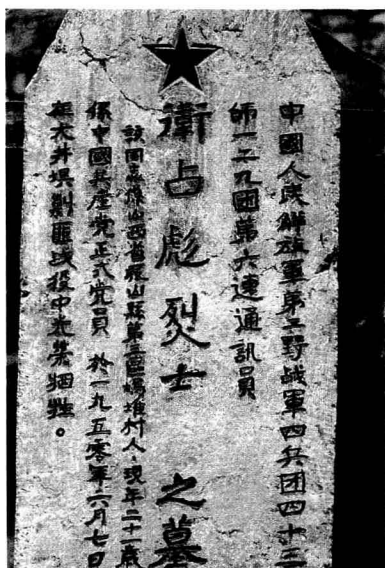 中國人民解放軍第二野战軍四兵团四十三
師一二九團第六連通訊員
衛占彪烈士 之墓
該同志係山西省稷山縣第三區塢堆村人，現年二十一歲
係中國共產党正式党員 於一九五零年六月七日
在大井垻剿匪战役中光荣牺牲。